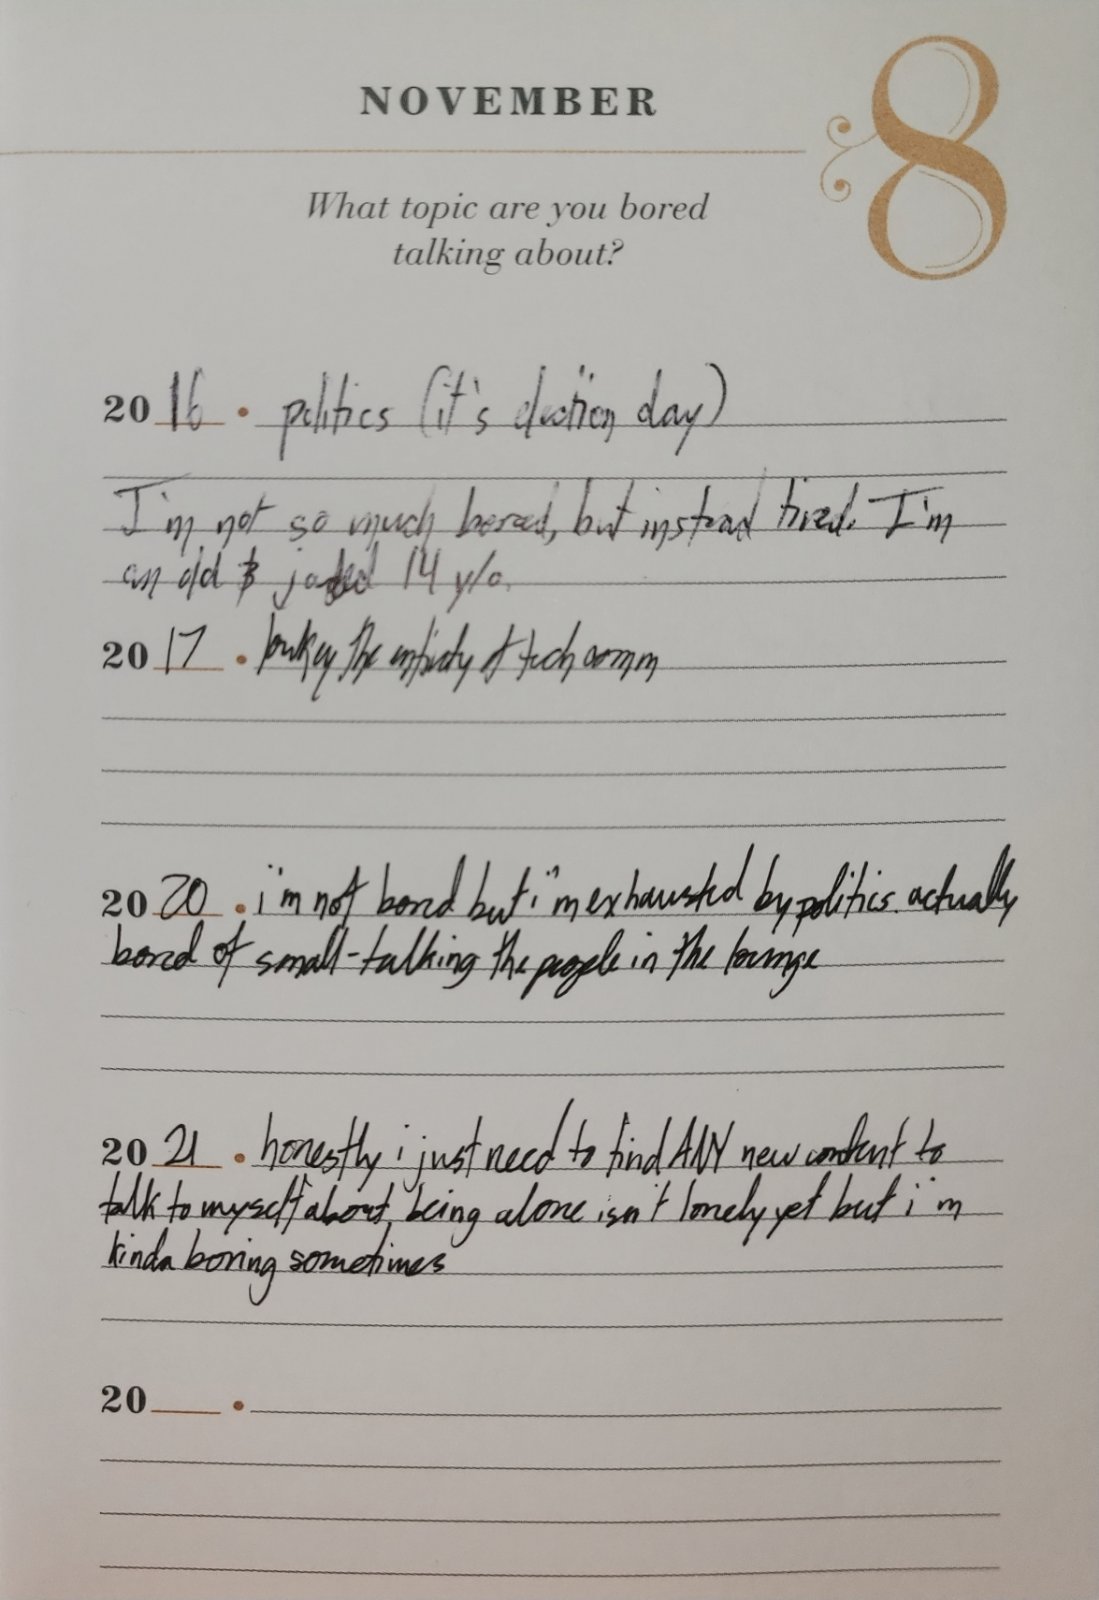 NOVEMBER
8
What topic are you bored
talking about?
2016 • politics (it's election day)
I'm not so much bored, but instead tired. I'm
an old & jaded 14 y/o.
2017 • the entirety of tech comm
2020 • i'm not bored but i'm exhausted by politics. actually
bored of small-talking the people in the lounge
2021 • honestly i just need to find ANY new content to
talk to myself about, being alone isn't lonely yet but i'm
kinda boring sometimes
20__ •